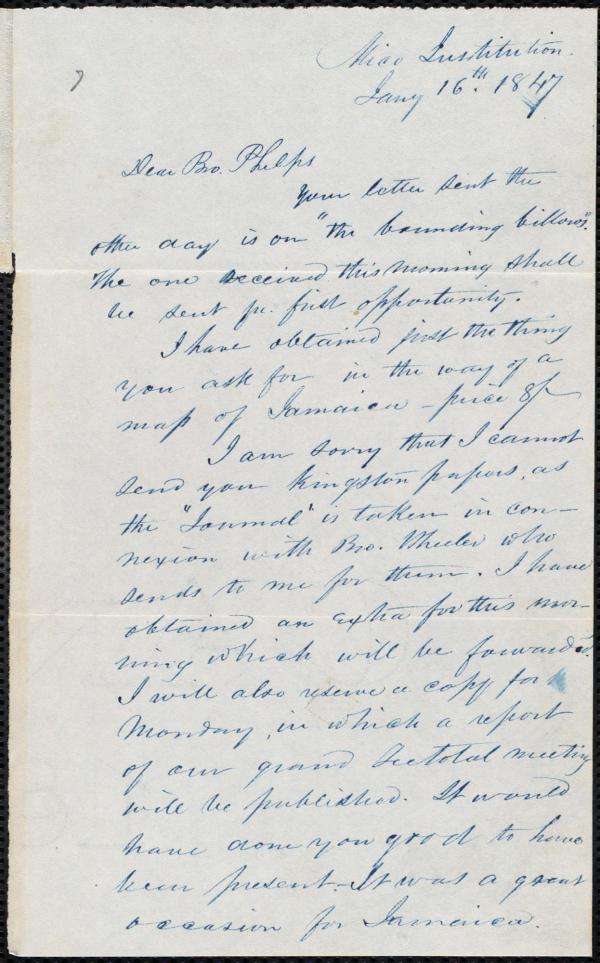 Mico Institution.
Jany 16th. 1847
Dear Bro. Phelps
Your letter sent the
other day is on "the bounding billows".
The one received this morning shall
be sent pr. first opportunity.
I have obtained just the thing
you ask for in the way of a
map of Jamaica - price 8/-
I am sorry that I cannot
send you Kingston papers, as
the "Journal" is taken in con-
nexion with Bro. Wheeler who
sends to me for them. I have
obtained an extra for this mor-
ning which will be forwarded.
I will also reserve a copy for
Monday, in which a report
of our grand Teetotal meeting
will be published. It would
have done you good to have
been present. - It was a great
occasion for Jamaica.